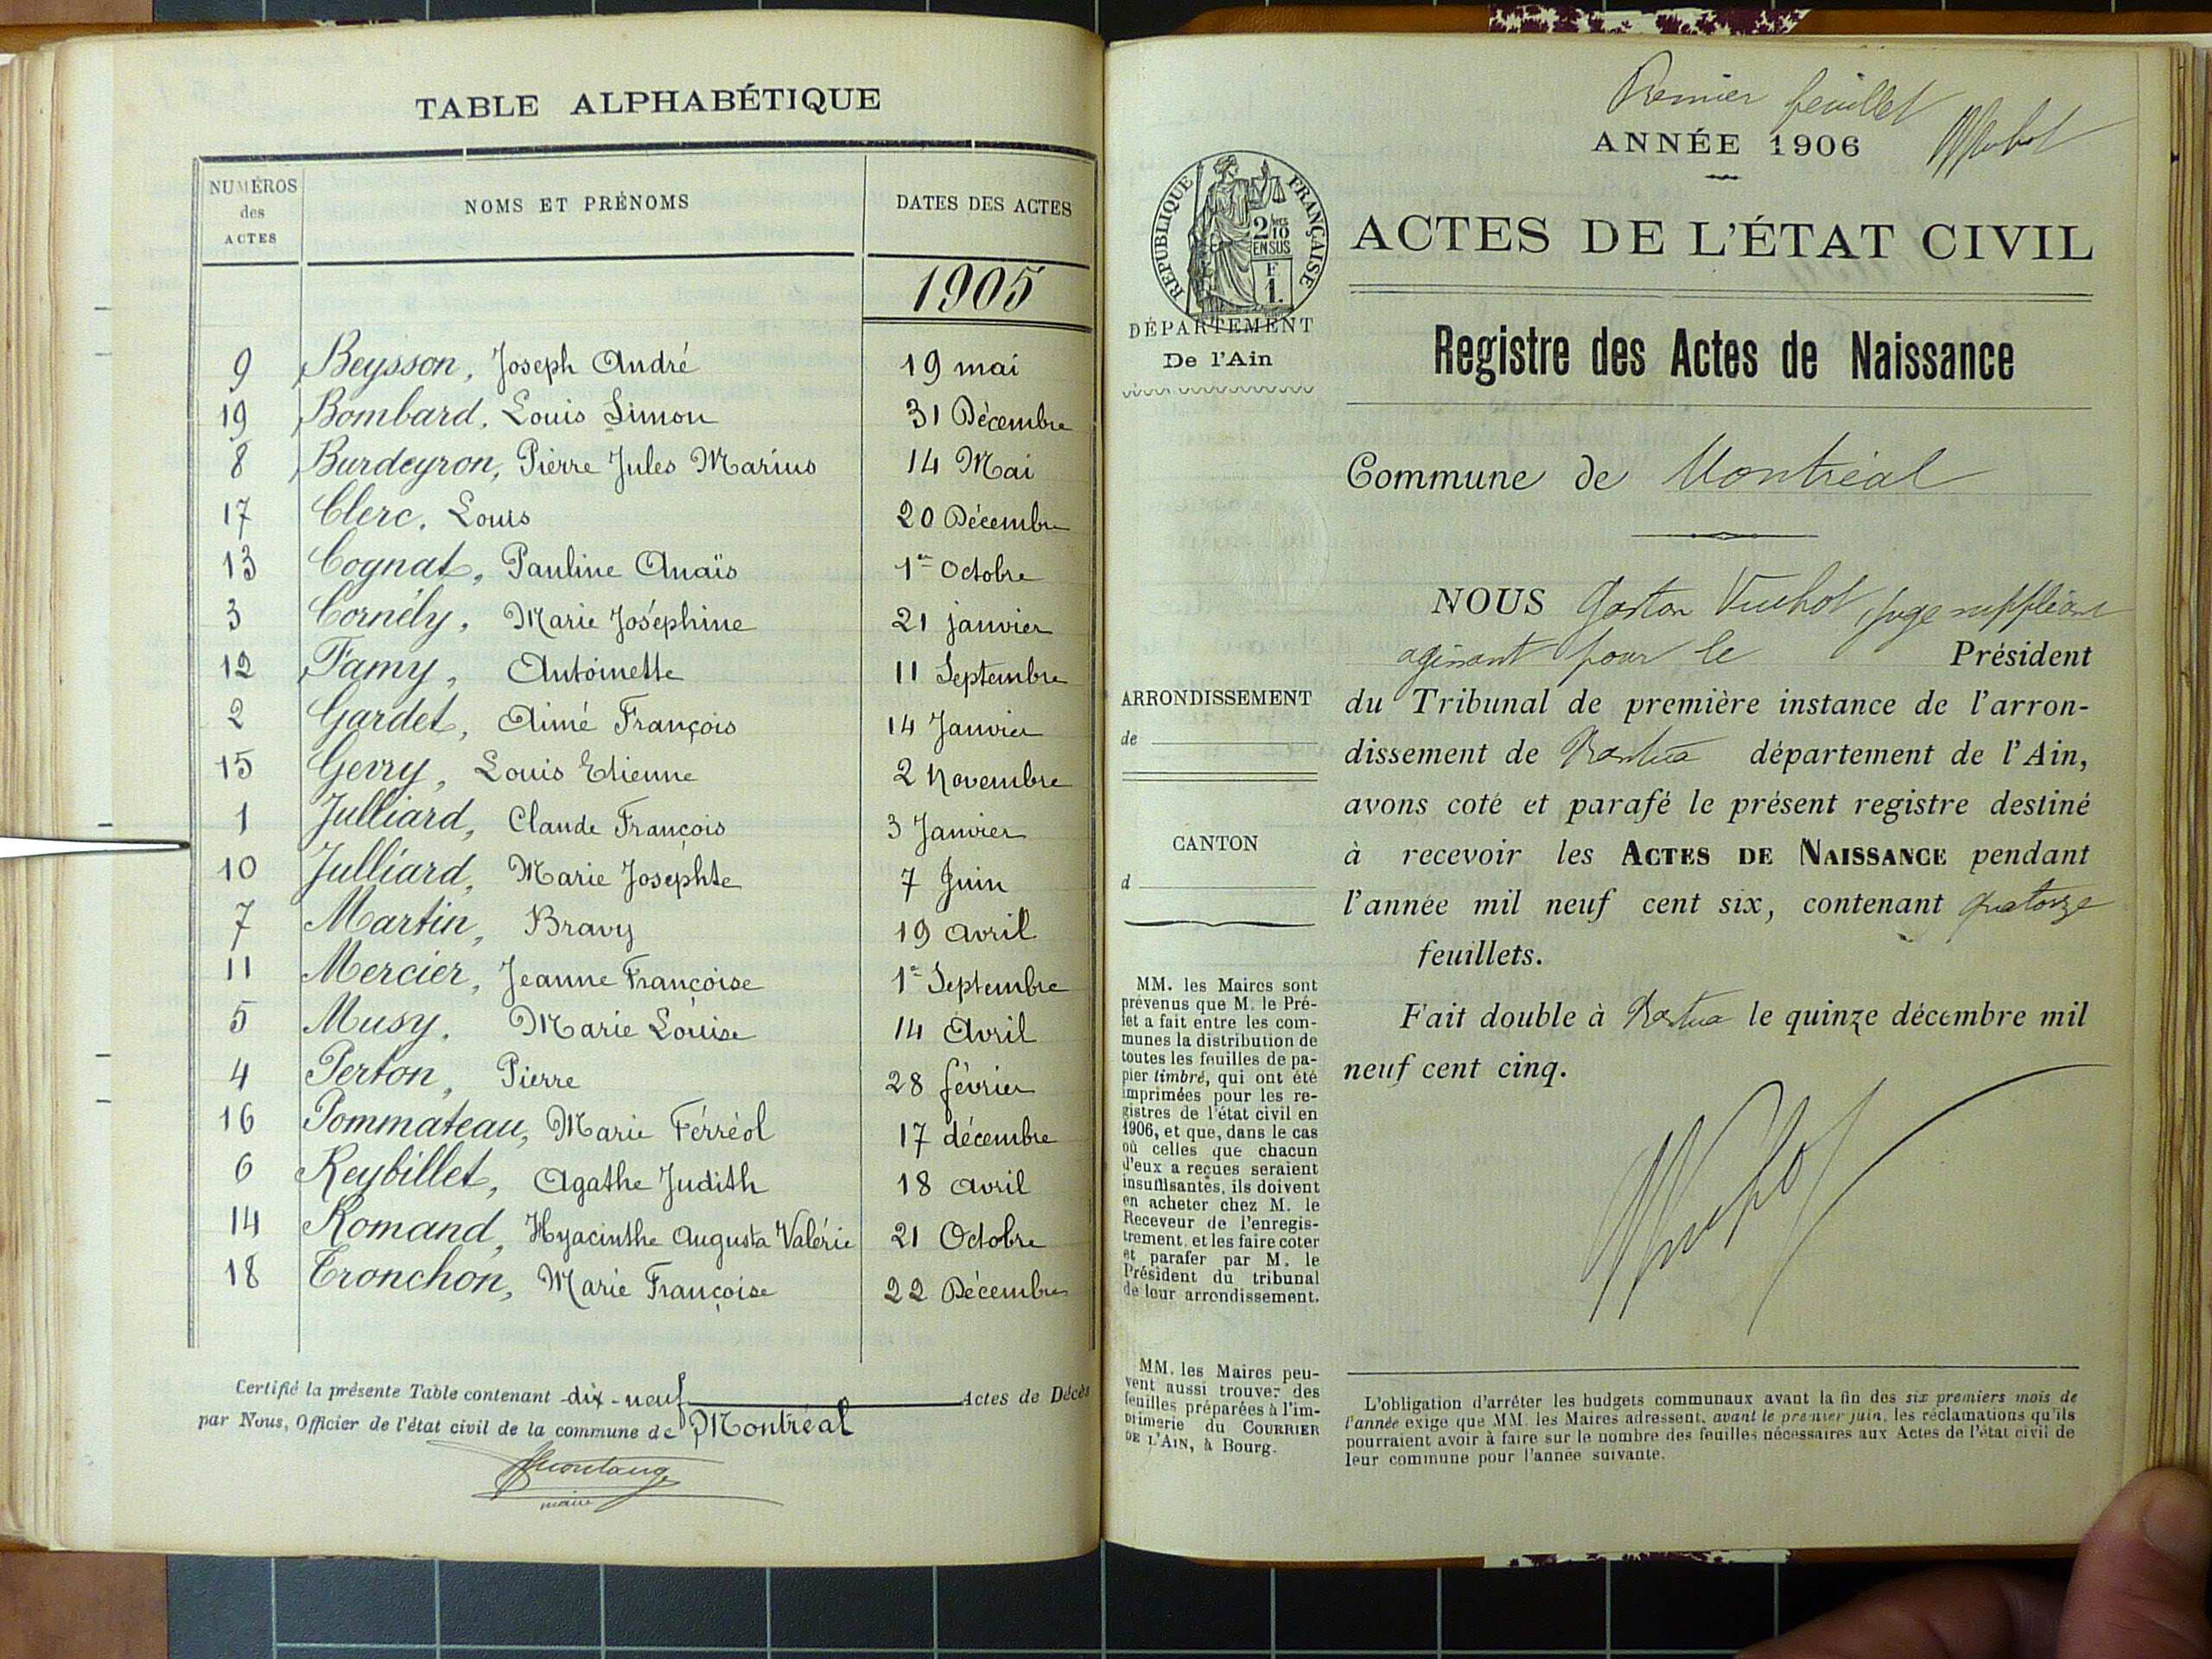 TABLE ALPHABÉTIQUE
NUMÉROS des ACTES
NOMS ET PRÉNOMS
DATES DES ACTES
1905
9 Beysson, Joseph André 19 mai
19 Bombard, Louis Simon 31 Décembre
8 Burdeyron, Pierre Jules Marius 14 Mai
17 Clerc, Louis 20 Décembre
13 Cognat, Pauline Anaïs 1er Octobre
3 Cornély, Marie Joséphine 21 janvier
12 Famy, Antoinette 11 Septembre
2 Gardet, Aimé François 14 Janvier
15 Gevry, Louis Etienne 2 Novembre
1 Julliard, Claude François 3 Janvier
10 Julliard, Marie Josephte 7 Juin
7 Martin, Bravy 19 avril
11 Mercier, Jeanne Françoise 1er Septembre
5 Musy, Marie Louise 14 Avril
4 Perton, Pierre 28 février
16 Pommateau, Marie Férréol 17 décembre
6 Reybillet, Agathe Judith 18 avril
14 Romand, Hyacinthe Augusta Valérie 21 Octobre
18 Tronchon, Marie Françoise 22 Décembre
Certifié la présente Table contenant dix-neuf Actes de Décès
par Nous, Officier de l'état civil de la commune de Montréal
maire
Premier feuillet
ANNÉE 1906
RÉPUBLIQUE FRANÇAISE
2/10
EN SUS
F
1.
ACTES DE L'ÉTAT CIVIL
DÉPARTEMENT
De l'Ain
Registre des Actes de Naissance
Commune de Montréal
NOUS Gaston Vuchot, juge suppléant
agissant pour le Président
du Tribunal de première instance de l'arron-
dissement de Nantua département de l'Ain,
avons coté et parafé le présent registre destiné
à recevoir les ACTES DE NAISSANCE pendant
l'année mil neuf cent six, contenant quatorze
feuillets.
Fait double à Nantua le quinze décembre mil
neuf cent cinq.
ARRONDISSEMENT
de
CANTON
d
MM. les Maires sont
prévenus que M. le Pré-
fet a fait entre les com-
munes la distribution de
toutes les feuilles de pa-
pier timbré, qui ont été
imprimées pour les re-
gistres de l'état civil en
1906, et que, dans le cas
où celles que chacun
d'eux a reçues seraient
insuffisantes, ils doivent
en acheter chez M. le
Receveur de l'enregis-
trement, et les faire coter
et parafer par M. le
Président du tribunal
de leur arrondissement.
MM. les Maires peu-
vent aussi trouver des
feuilles préparées à l'im-
primerie du COURRIER
DE L'AIN, à Bourg.
L'obligation d'arrêter les budgets communaux avant la fin des six premiers mois de
l'année exige que MM. les Maires adressent, avant le premier juin, les réclamations qu'ils
pourraient avoir à faire sur le nombre des feuilles nécessaires aux Actes de l'état civil de
leur commune pour l'année suivante.